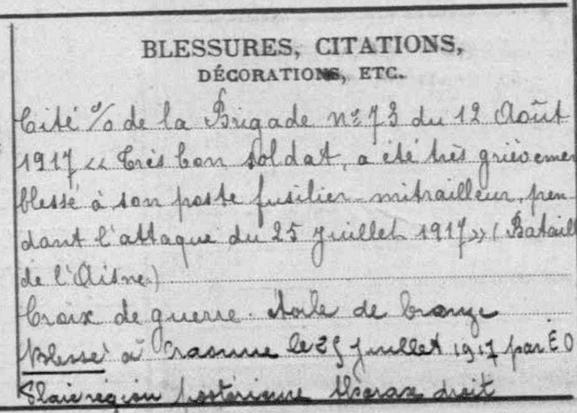 BLESSURES, CITATIONS,
DÉCORATIONS, ETC.
Cité % de la Brigade n° 73 du 12 Août
1917 << Très bon soldat, a été très grièvemen
blessé à son poste fusilier-mitrailleur, pen-
dant l'attaque du 25 juillet 1917 >> (Bataill
de l'Aisne)
Croix de guerre étoile de bronze
Blessé à Craonne le 25 juillet 1917 par E O
Plaie région postérieure thorax droit